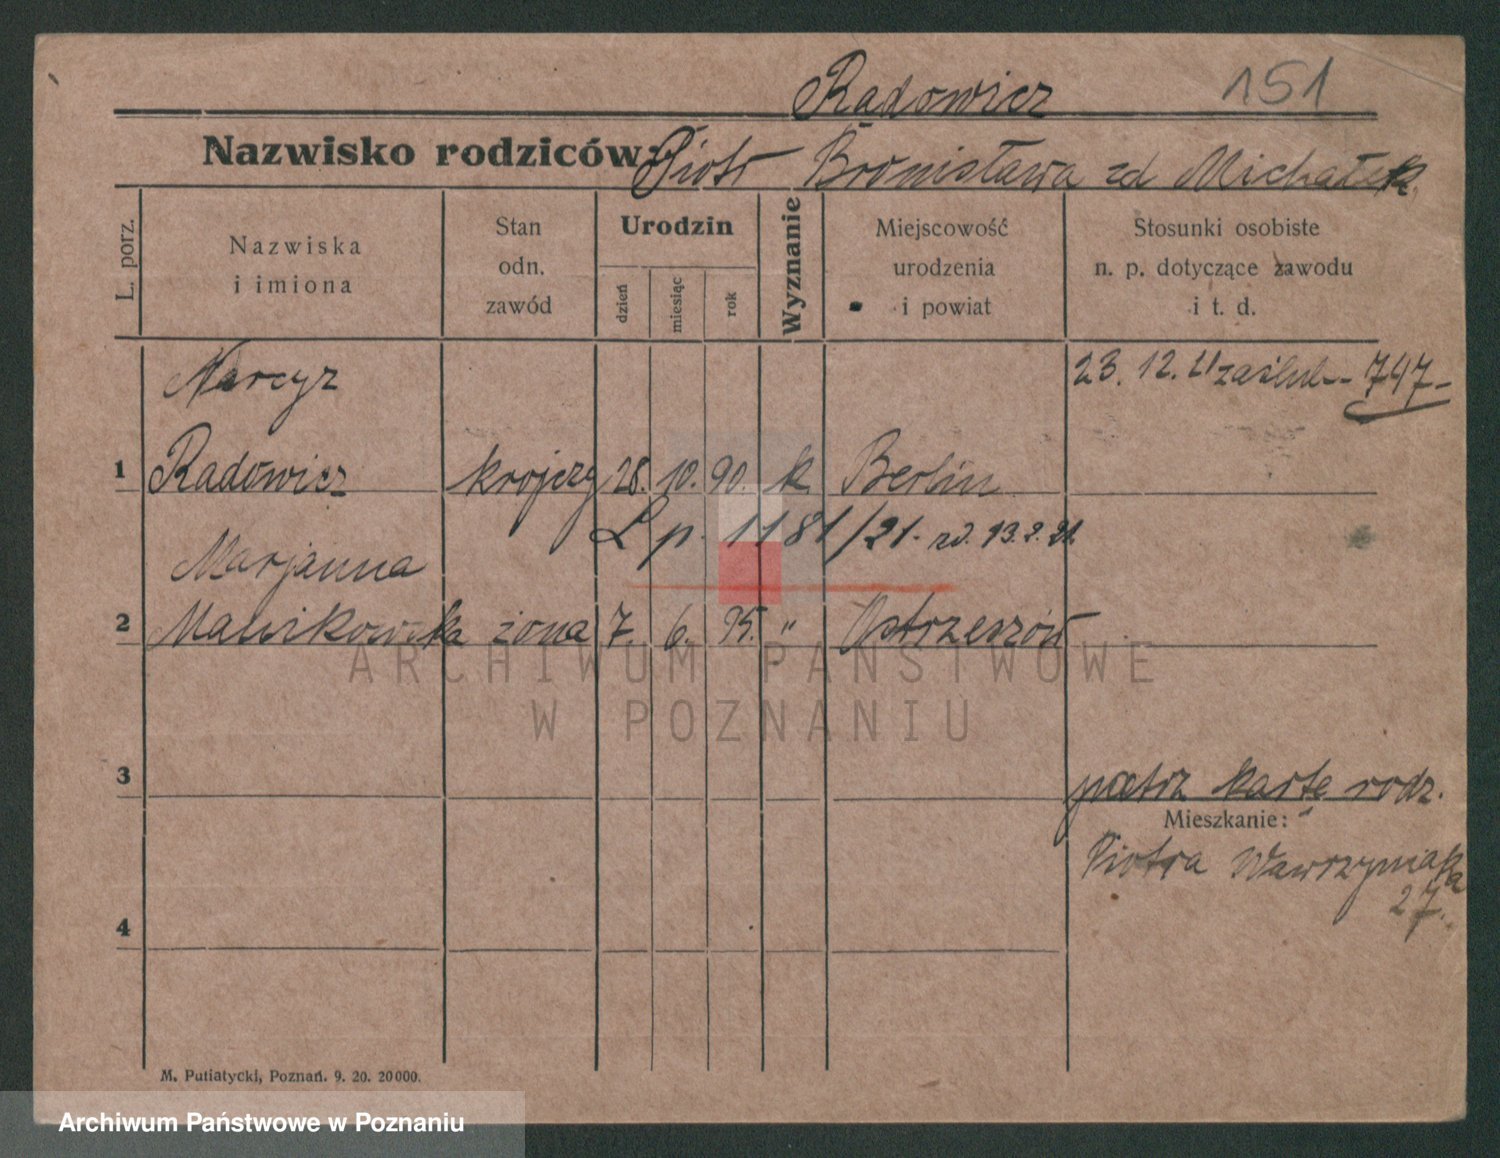 Radowicz 151
Nazwisko rodziców: Piotr Bronisława zd Michałek
L. porz.
Nazwiska
i imiona
Stan
odn.
zawód
Urodzin
dzień
miesiąc
rok
Wyznanie
Miejscowość
urodzenia
i powiat
Stosunki osobiste
n. p. dotyczące zawodu
i t. d.
Narcyz 23. 12. 21 zaślub - 747 -
1 Radowicz krojczy 28. 10. 90. k. Berlin
Lp. 1181/21.
Marjanna
2 żona 7. 6. 95. " Ostrzeszów
ARCHIWUM PAŃSTWOWE
W POZNANIU
3 patrz kartę rodz.
Mieszkanie:
Piotra Wawrzyniaka
27.
4
M. Putiatycki, Poznań. 9. 20. 20000.
Archiwum Państwowe w Poznaniu